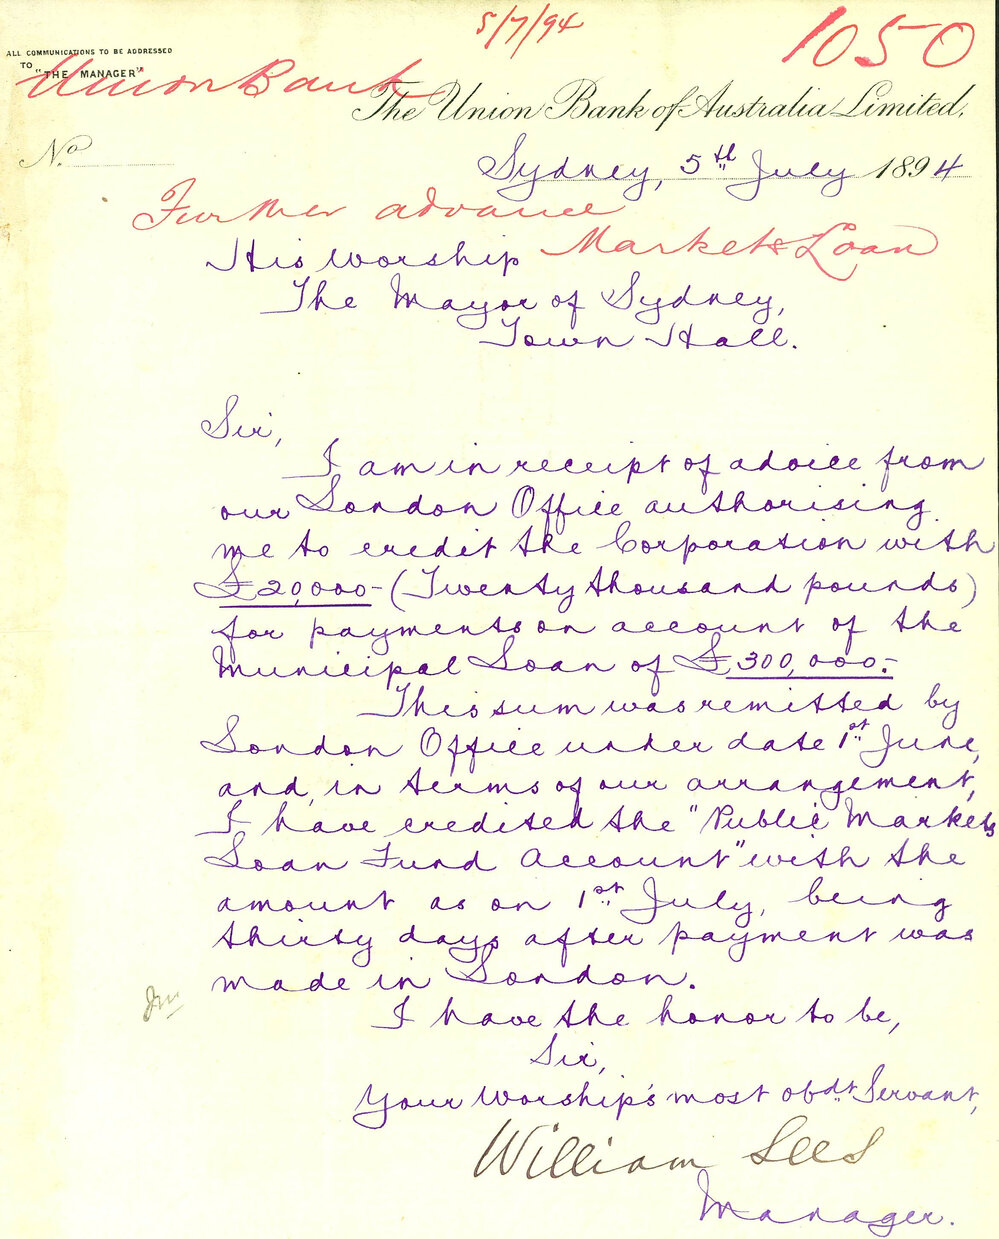 5/7/94
1050
ALL COMMUNICATIONS TO BE ADDRESSED
TO "THE MANAGER"
Union Bank
The Union Bank of Australia Limited,
No
Sydney, 5th July 1894
Further advance
Markets Loan
His Worship
The Mayor of Sydney,
Town Hall.
Sir,
I am in receipt of advice from
our London Office authorising
me to credit the Corporation with
£20,000- (Twenty thousand pounds)
for payments on account of the
Municipal Loan of £300,000.-
This sum was remitted by
London Office under date 1st June,
and, in terms of our arrangement,
I have credited the "Public Markets
Loan Fund Account" with the
amount as on 1st July, being
thirty days after payment was
made in London.
I have the honor to be,
Sir,
Your Worship's most obdt Servant,
William Lees
Manager.